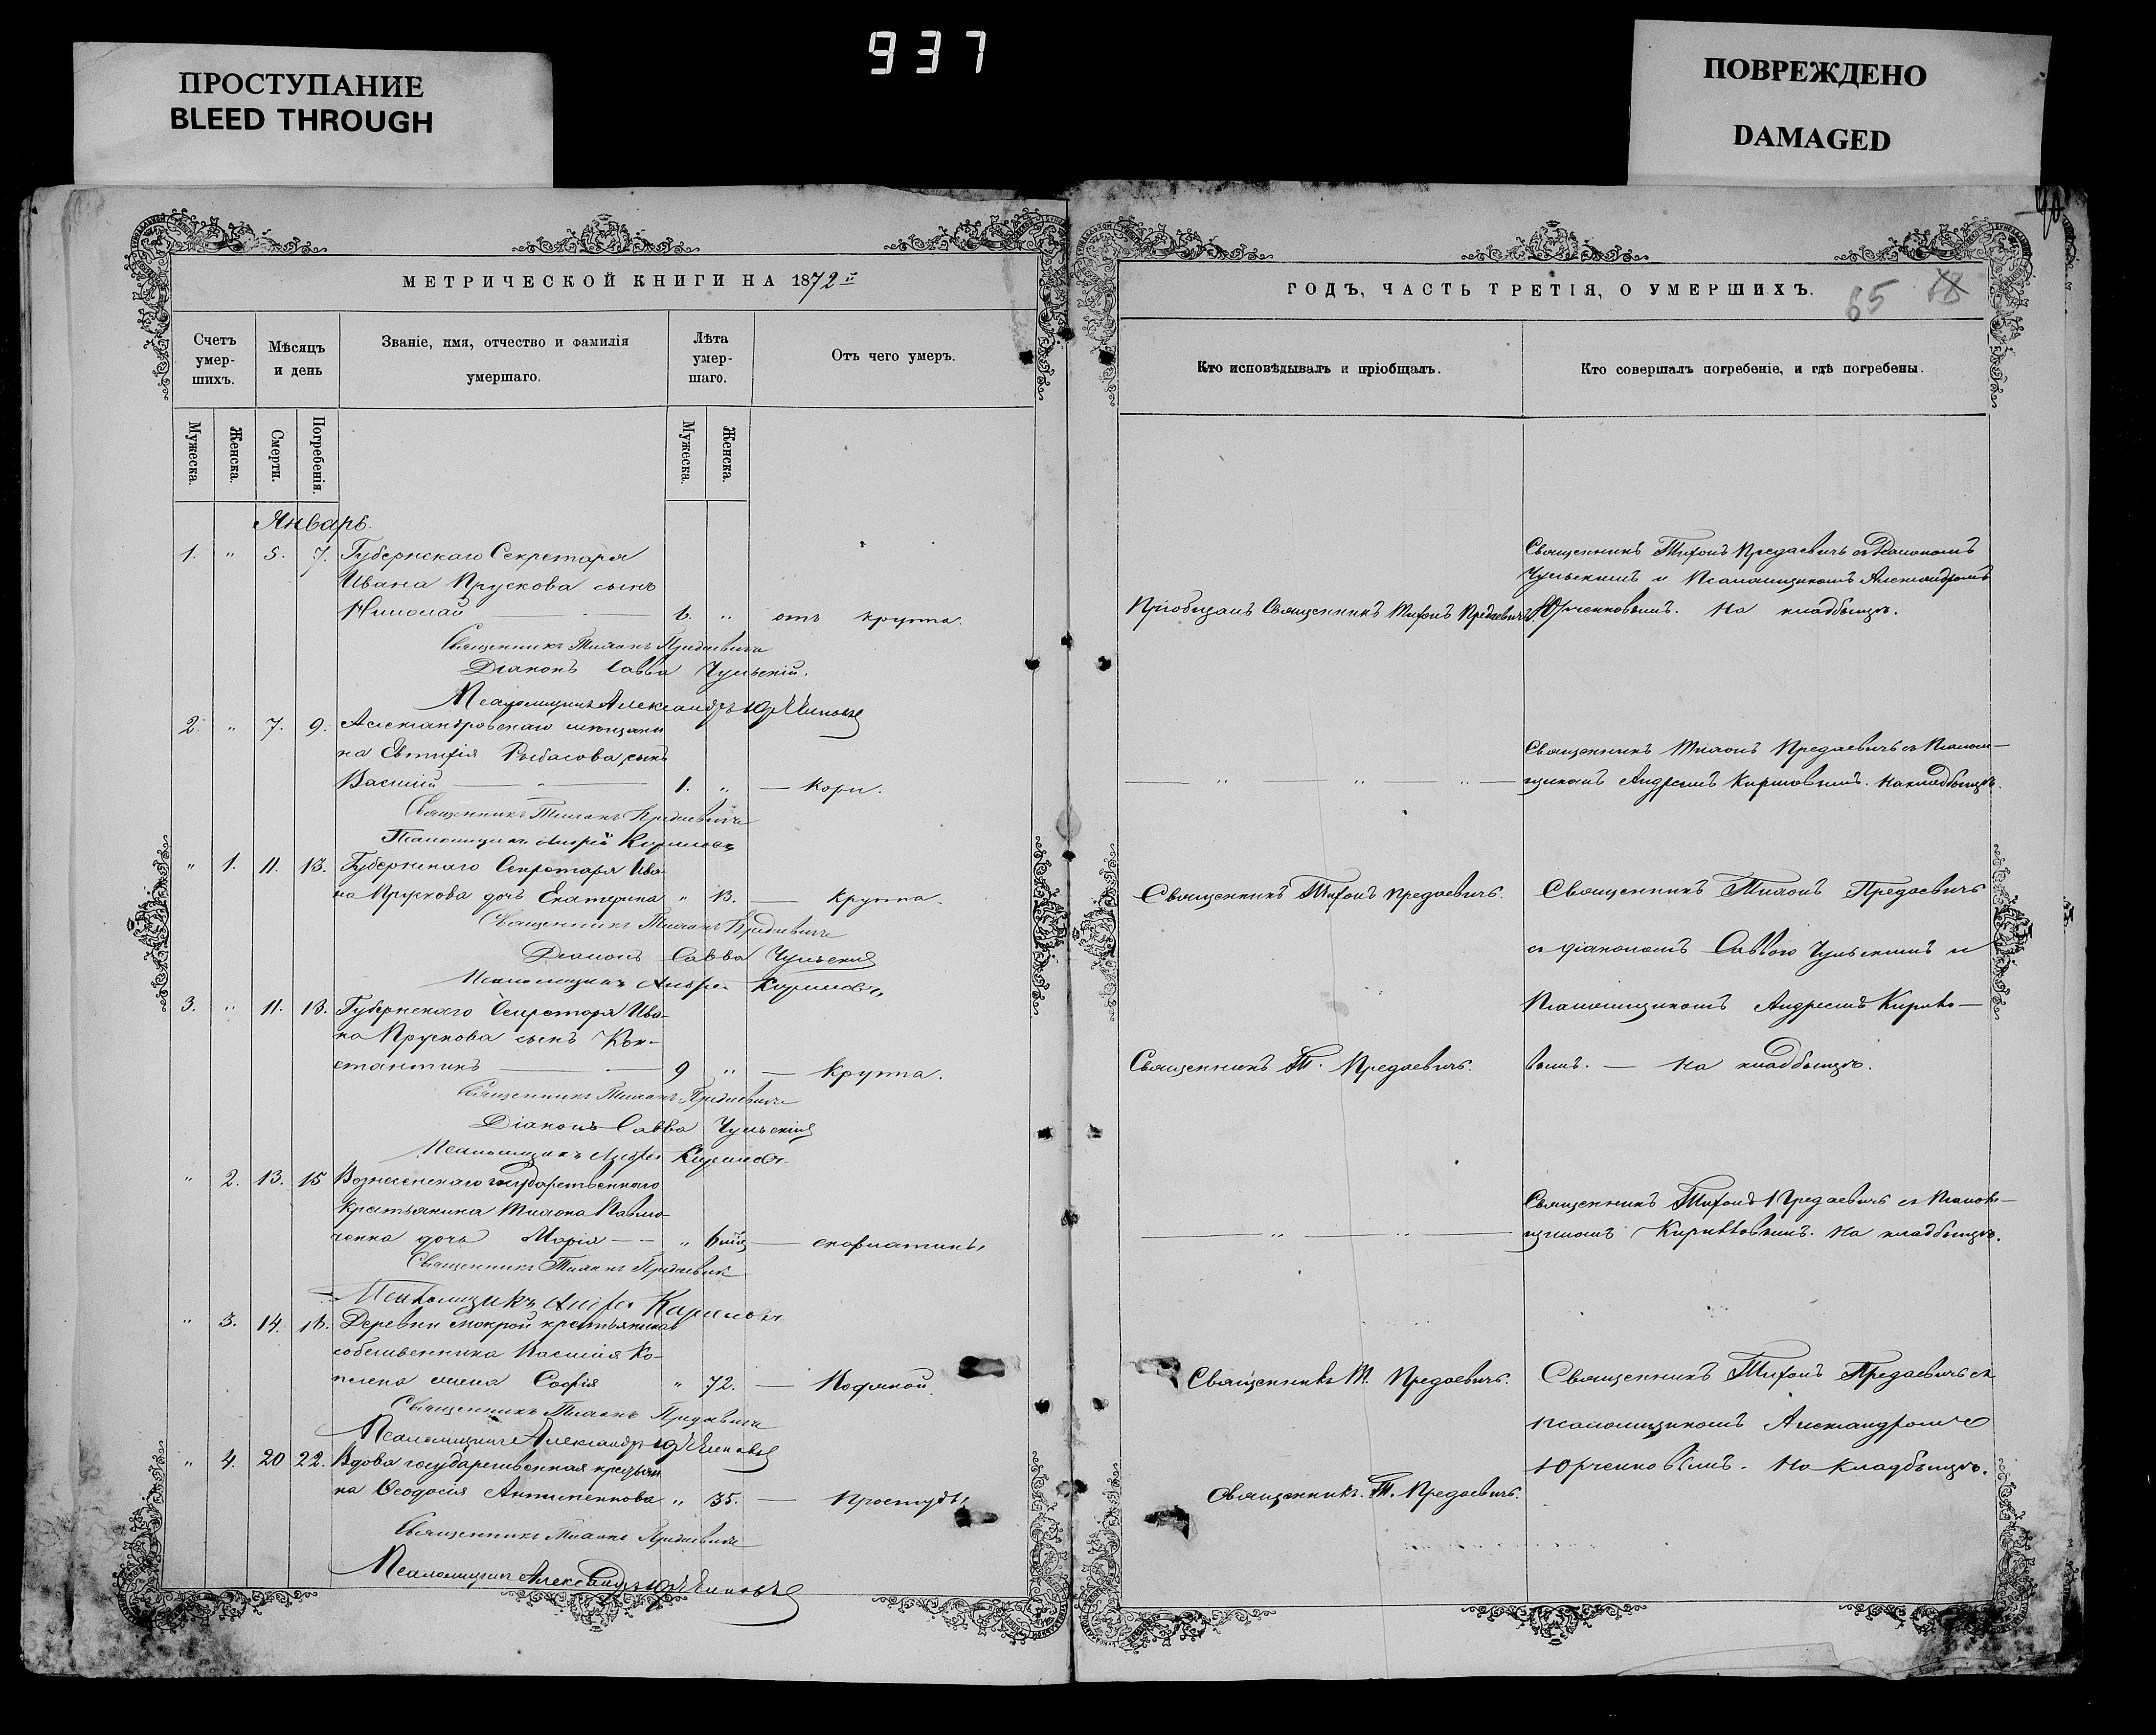 937
ПРОСТУПАНИЕ
BLEED THROUGH
ПОВРЕЖДЕНО
DAMAGED
МЕТРИЧЕСКОЙ КНИГИ НА 1872
Счетъ умер-шихъ.
Мѣсяцъ и день
Званіе, имя, отчество и фамилія умершаго.
Лѣта умер-шаго.
Отъ чего умеръ.
Мужеска.
Женска.
Смерти.
Погребенія.
Мужеска.
Женска.
Январь.
1. " 5. 7. Губернскаго Секретаря
Ивана Прускова сынъ
Николай 6. " отъ круппа.
Священникъ Тихонъ Предаевичъ
Діаконъ Савва Чульскій.
Псаломщикъ Александръ Юрченковъ
2. " 7. 9. Александровскаго мѣщани
на Евтифія Рыбасова сынъ
Василій 1. " — Кори.
Священникъ Тихонъ Предаевичъ
Псаломщикъ Андрей Кириловъ
" 1. 11. 13. Губернскаго Секретаря Ива-
на Прускова дочь Екатерина " 13. — Круппа.
Священникъ Тихонъ Предаевичъ
Діаконъ Савва Чульскій
Псаломщикъ Андрей Кириловъ
3. " 11. 13. Губернскаго Секретаря Ива-
на Прускова сынъ Кон-
стантинъ 9 " — Круппа.
Священникъ Тихонъ Предаевичъ
Діаконъ Савва Чульскій
Псаломщикъ Андрей Кириловъ
" 2. 13. 15 Вознесенскаго государственнаго
крестьянина Тихона Павлю-
ченка дочь Марія " — скарлатины
Священникъ Тихонъ Предаевичъ
Псаломщикъ Андрей Кириловъ
" 3. 14. 16. Деревни Мокрой крестьянина
собственника Василія Ко-
жена Софія " 72. — Водяной.
Священникъ Тихонъ Предаевичъ
Псаломщикъ Александръ Юрченковъ
" 4. 20 22. Вдова государственная крестьян
ка Ѳеодосія Антипенкова " 35. — Простуды
Священникъ Тихонъ Предаевичъ
Псаломщикъ Александръ Юрченковъ
ГОДЪ, ЧАСТЬ ТРЕТІЯ, О УМЕРШИХЪ.
65
Кто исповѣдывалъ и пріобщалъ.
Кто совершалъ погребеніе, и гдѣ погребены.
Священникъ Тихонъ Предаевичъ съ Діакономъ
Чульскимъ и Псаломщикомъ Александромъ
Пріобщалъ Священникъ Тихонъ Предаевичъ. Юрченковымъ. На кладбищѣ.
Священникъ Тихонъ Предаевичъ съ Псалом-
— " — " — " — щикомъ Андреемъ Кириловымъ. На кладбищѣ.
Священникъ Тихонъ Предаевичъ. Священникъ Тихонъ Предаевичъ
съ діакономъ Саввою Чульскимъ и
Псаломщикомъ Андреемъ Кирило-
Священникъ Т. Предаевичъ. вымъ. — На кладбищѣ.
Священникъ Тихонъ Предаевичъ съ Псалом-
— " — " — щикомъ Кириловымъ. На кладбищѣ.
Священникъ Т. Предаевичъ. Священникъ Тихонъ Предаевичъ съ
Псаломщикомъ Александромъ
Юрченковымъ. На кладбищѣ.
Священникъ. Т. Предаевичъ.